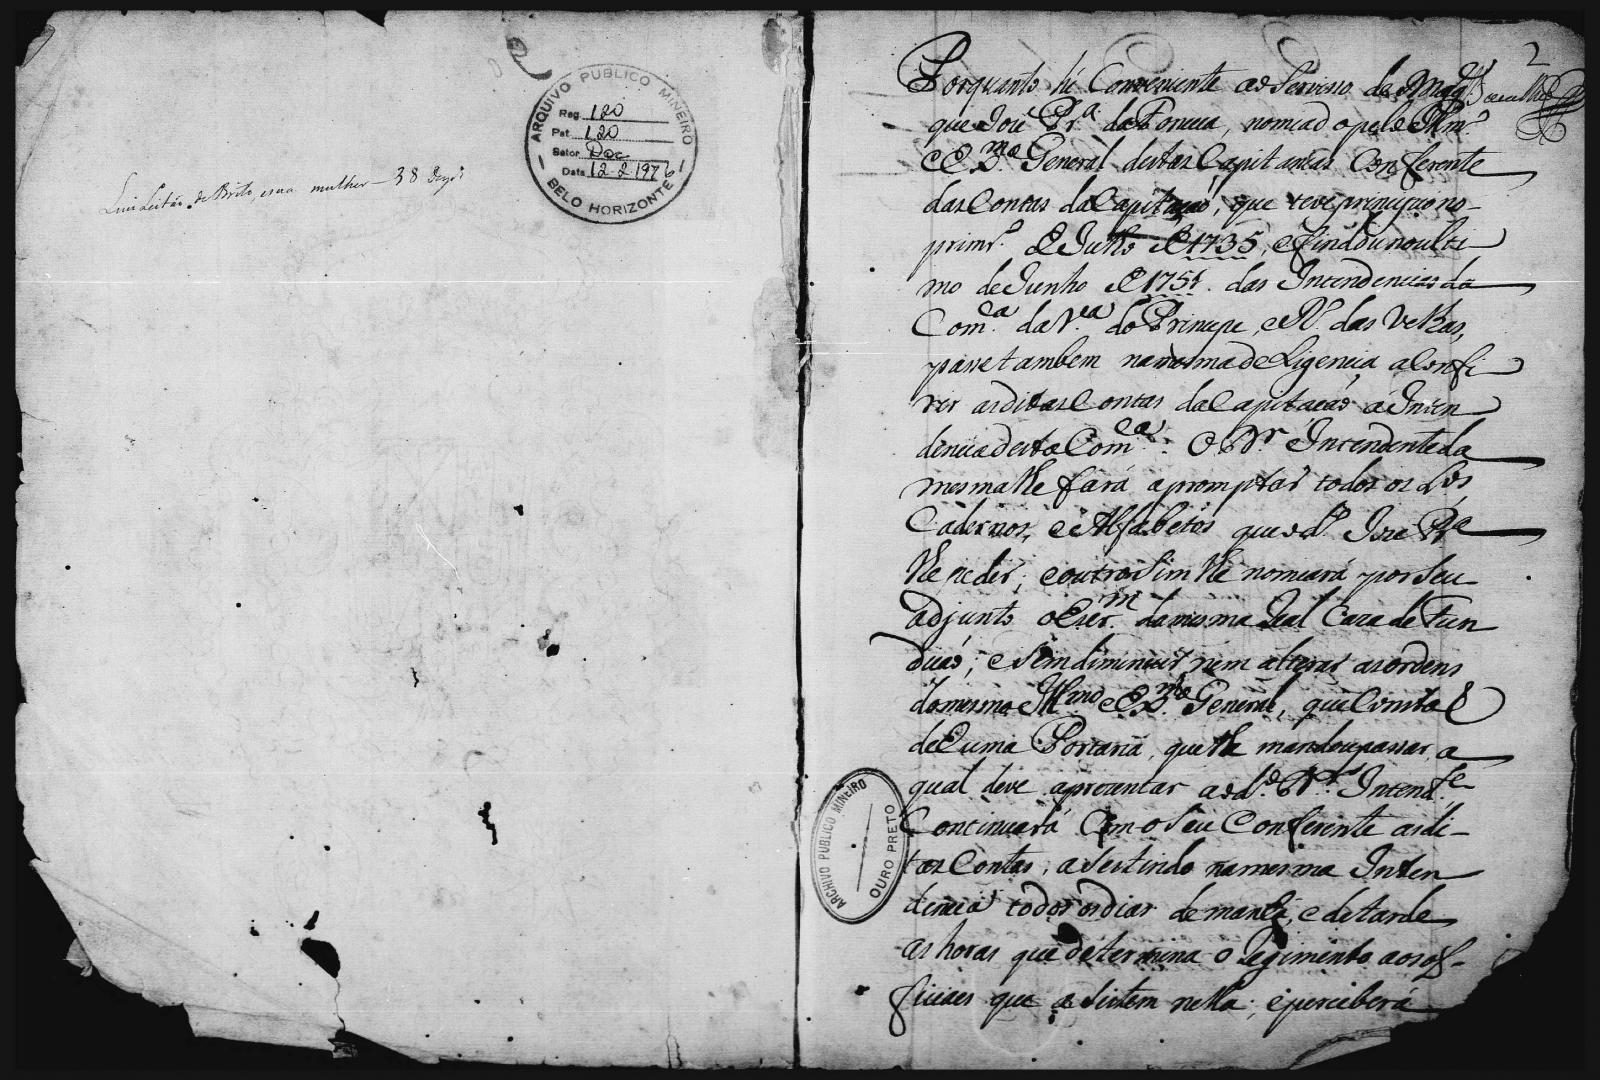 ARQUIVO PUBLICO MINEIRO
Reg. 120
Pat. 120
Setor Doc
Data 12 2 1976
BELO HORIZONTE
Luis Leitão de Brito, e sua mulher — 38
2
Porquanto hé Conveniente ao Servisso de Mag.
que José Pr.ª da Fonceca, nomiado pelo Illm.º
e Ex.mo General destas Capitanias Conferente
das Contas da Capitação, que teve principio no
prim.ro de Julho de 1735, e findou no ulti
mo de Junho de 1751. das Intendencias da
Com.ca da V.ª do Principe, e R.º das Velhas,
passe tambem na mesma deligencia a Confi
rir as ditas Contas da Capitação á Inten
dencia desta Com.ca. O Dr. Intendente da
mesma lhe fará apromptar todos os L.os
Cadernos, e Alfabetos que o d.º José Pr.ª
lhe pedir; e outro sim lhe nomiará por seu
adjunto o Escr.m da mesma Real Caza de Fun
dição; e sem diminuir nem alterar as ordens
do mesmo Ill.mo e Ex.mo General, que Consta
de huma Portaria, que lhe mandou passar, a
qual deve aprezentar ao d.º Dr. Intend.te
Continuará Com o seu Conferente as di
tas Contas, asestindo na mesma Inten
dencia todos os dias de manhã, e de tarde
as horas que determina o Regimento aos of
ficiaes que asestem nella; e perceberá
ARCHIVO PUBLICO MINEIRO
OURO PRETO